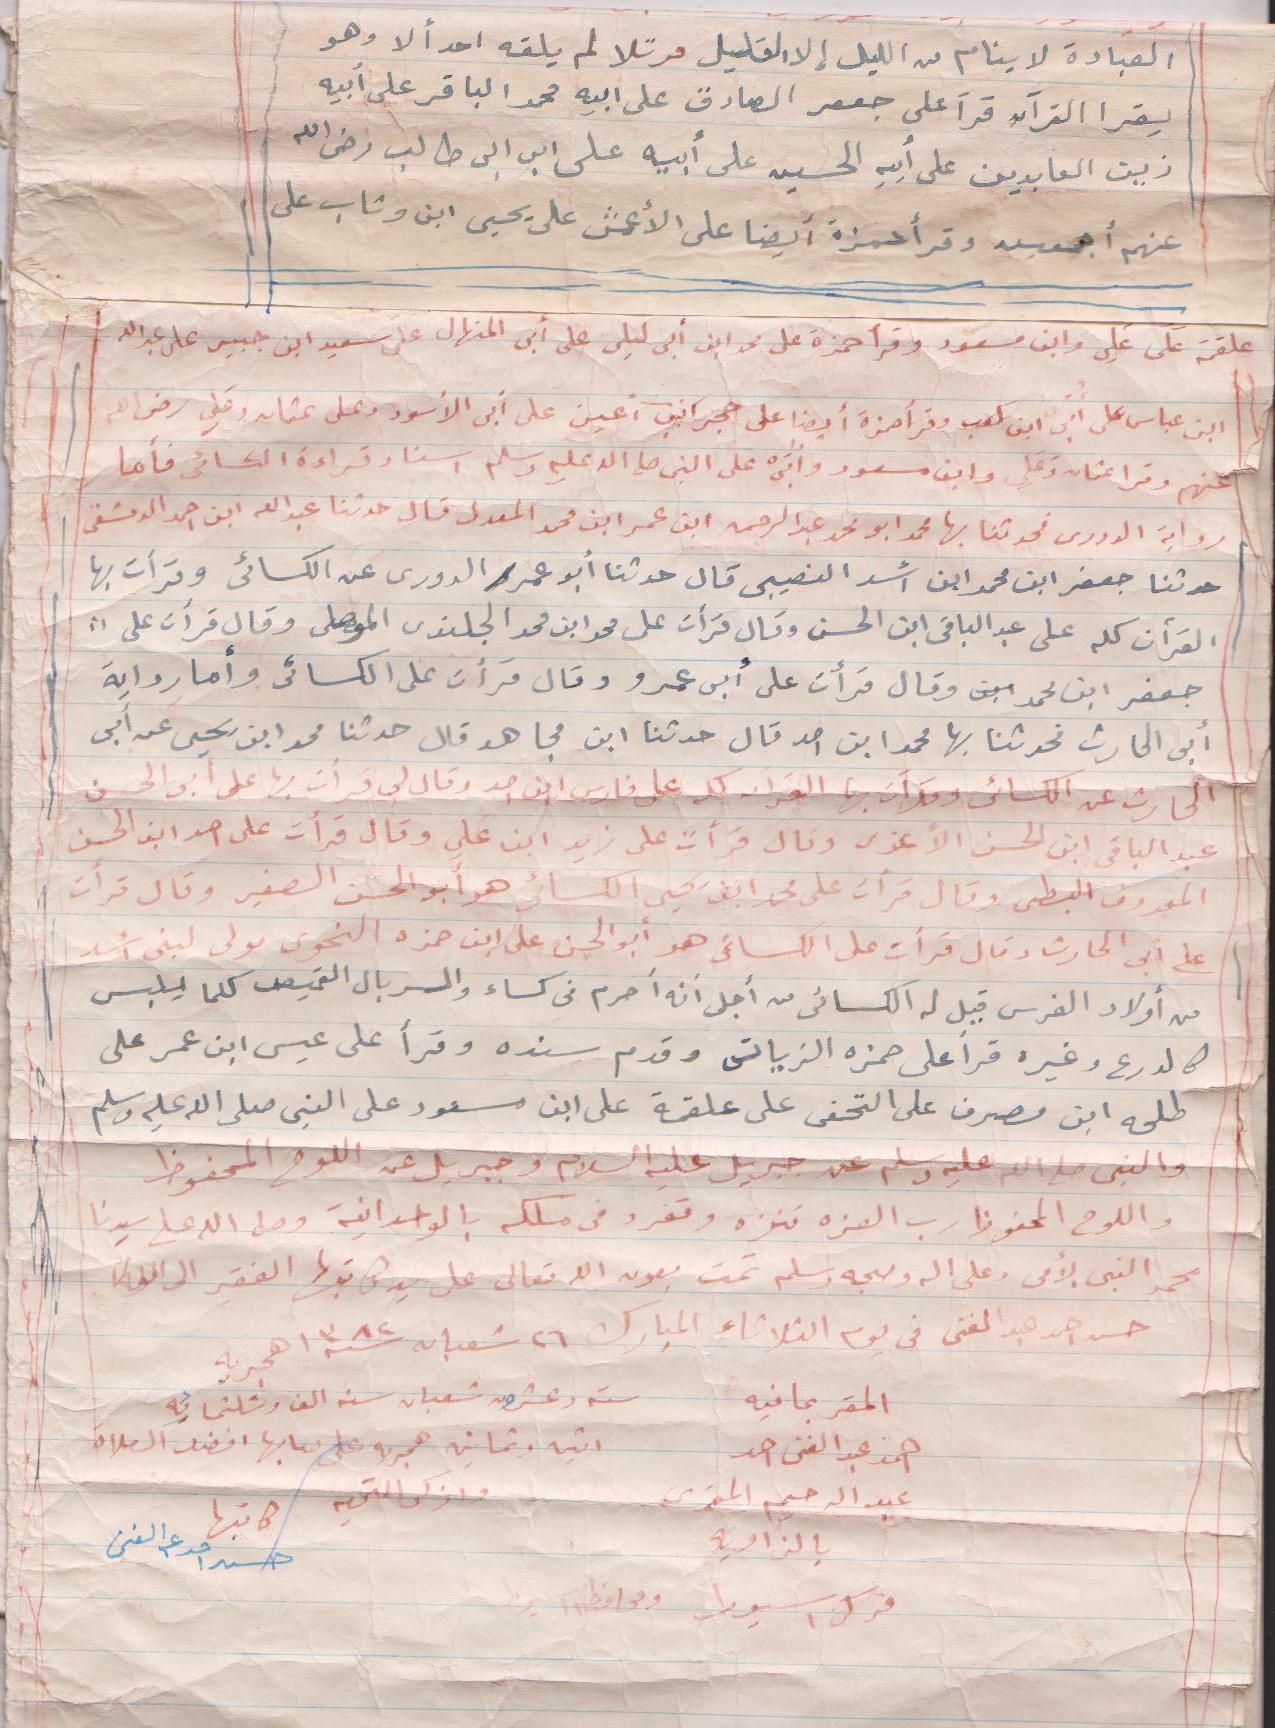 العبادة لا ينام من الليل إلا القليل مرتلا لم يلقه احد ألا وهو
يقرا القرآن قرأ على جعفر الصادق على ابيه محمد الباقر على أبيه
زين العابدين على أبيه الحسين على أبيه على ابن ابى طالب رضى الله
عنهم أجمعين وقرأ حمزة أيضا على الأعمش على يحيى ابن وثاب على
علقمة على على وابن مسعود وقرأ حمزة على محمد ابن أبى ليلى على أبى المنهال على سعيد ابن جبير على عبد الله
ابن عباس على أبى ابن كعب وقرأ حمزة أيضا على حجر ابن أعين على أبى الأسود وعلى عثمان وعلى رضى الله
عنهم وقرا عثمان وعلى وابن مسعود وأبى على النبى صلى الله عليه وسلم اسناد قراءة الكسائى فأما
رواية الدورى فحدثنا بها محمد ابو محمد عبد الرحمن ابن عمر ابن محمد المعدل قال حدثنا عبد الله ابن احمد الدمشقى
حدثنا جعفر ابن محمد ابن أشد النصيبى قال حدثنا أبو عمر الدورى عن الكسائى وقرأت بها
القرأن كله على عبد الباقى ابن الحسن وقال قرأت على محمد ابن محمد الجلندى الموصلى وقال قرأت على
جعفر ابن محمد وقال قرأت على أبى عمرو وقال قرأت على الكسائى وأما رواية
أبى الحارث فحدثنا بها محمد ابن احمد قال حدثنا ابن مجاهد قال حدثنا محمد ابن يحيى عن أبى
الحارث عن الكسائى وقرأت بها القرآن كله على فارس ابن احمد وقال لى قرأت بها على أبى الحسن
عبد الباقى ابن الحسن وقال قرأت على زيد ابن على وقال قرأت على احمد ابن الحسن
المعروف البطى وقال قرأت على محمد ابن يحيى الكسائى هو أبو الحسن الصغير وقال قرأت
على أبى الحارث وقال قرأت على الكسائى هو أبو الحسن على ابن حمزه النحوى مولى لبنى أشد
من أولاد الفرس قيل له الكسائى من أجل أنه أحرم فى كساء والسربال القميص كلما يلبس
كالدرع وغيره قرأ على حمزه الزيات وقدم سنده وقرأ على عيسى ابن عمر على
طلحه ابن مصرف على النخعى على علقمة على ابن مسعود على النبى صلى الله عليه وسلم
والنبى صلى الله عليه وسلم عن جبريل عليه السلام وجبريل عن اللوح المحفوظ
واللوح المحفوظ رب العزه تنزه وتفرد فى ملكه بالوحدانية وصلى الله على سيدنا
محمد النبى الأمى وعلى اله وصحبه وسلم تمت بعون الله تعالى على يد كاتبها الفقير الى الله
حسن احمد عبد الغنى فى يوم الثلاثاء المبارك ٢٦ شعبان سنة ١٣٨٢ هجريه
المقر بما فيه
سته وعشرين شعبان سنه الف وثلثمائه
احمد عبد الغنى احمد
اثنين وثمانين هجريه على صاحبها افضل الصلاة
عبد الرحيم المقرى
وازكى التحيه
بالزاوية
كاتبها
حسن احمد عبد الغنى
مركز اسيوط ومحافظة اسيوط